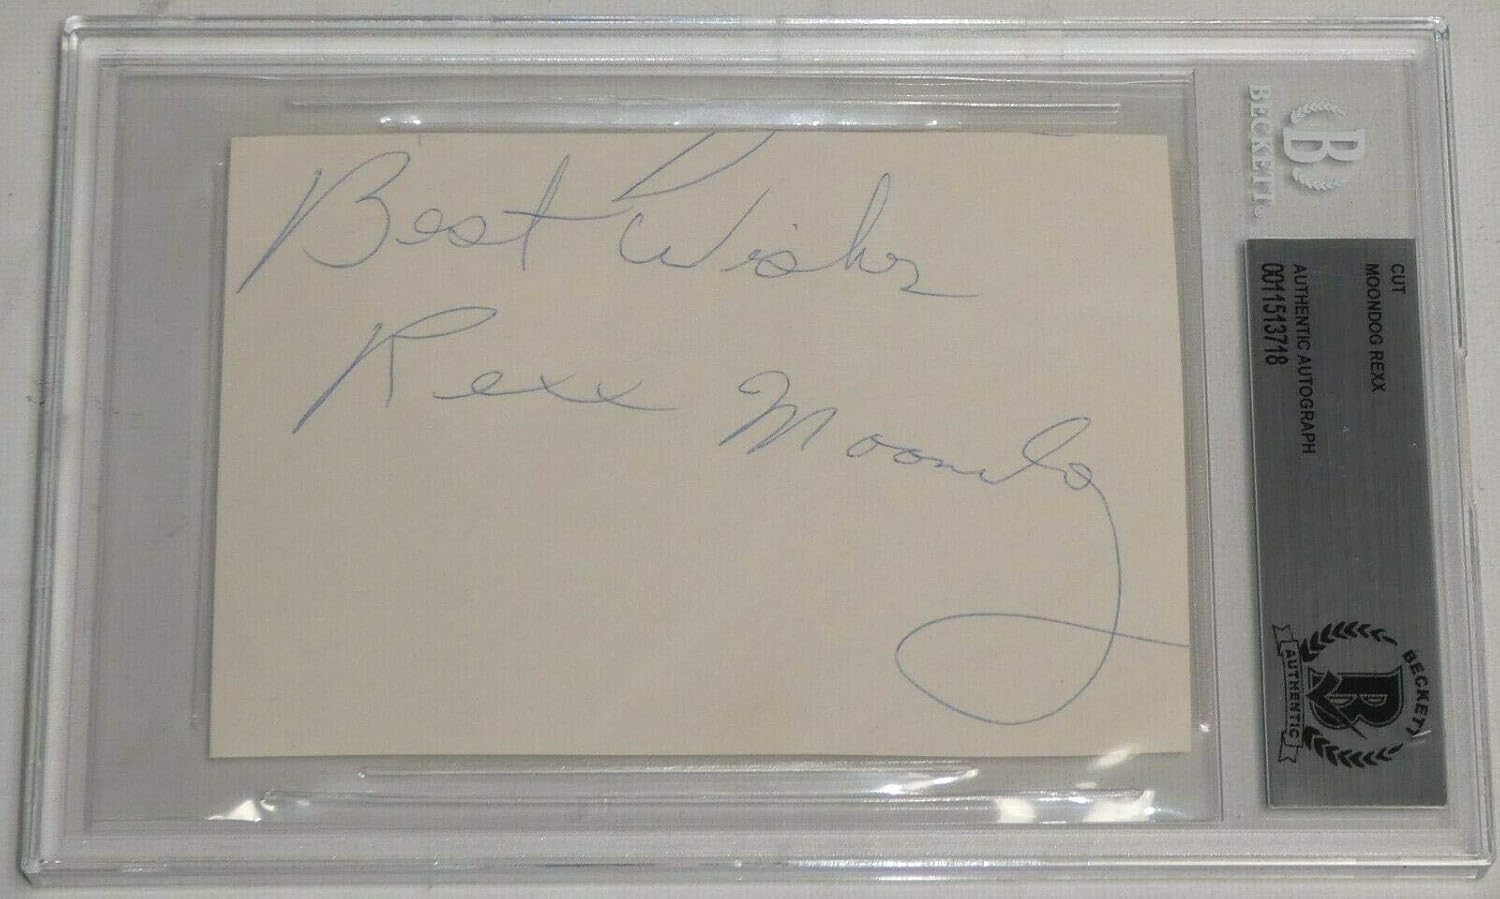 Best Wishes
Rexx Moondog
BECKETT
B
CUT
MOONDOG REXX
AUTHENTIC AUTOGRAPH
0011513718
BECKETT
B
AUTHENTIC